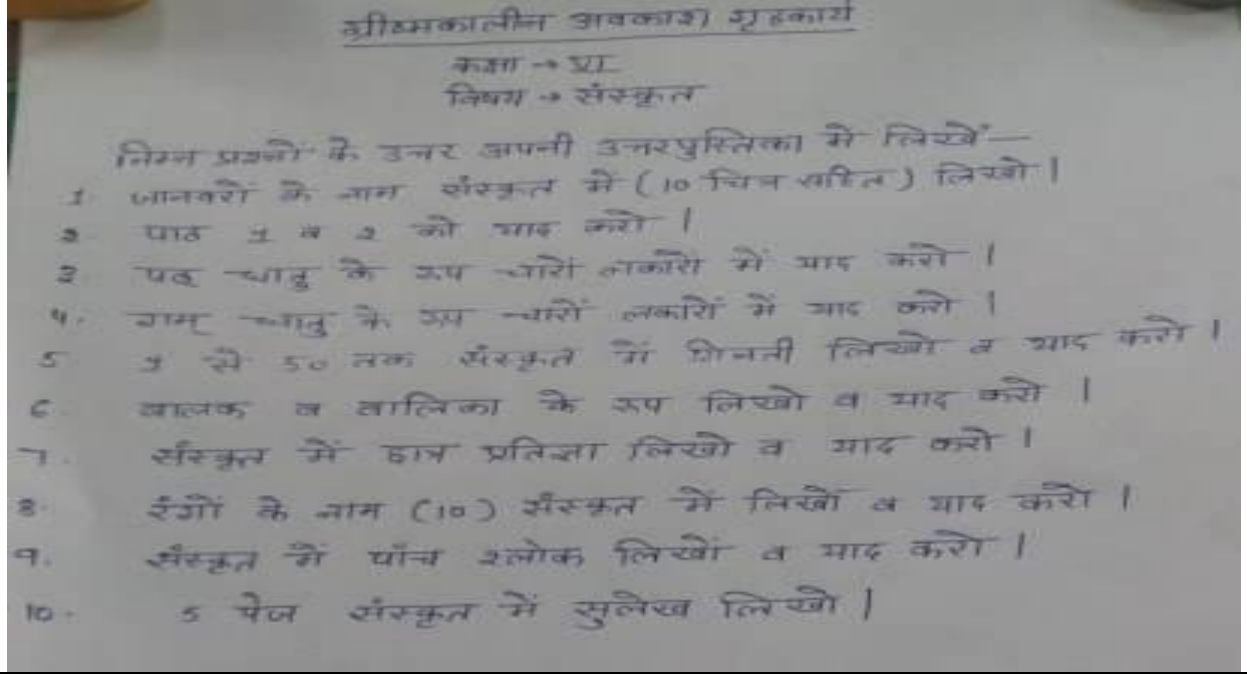 ग्रीष्मकालीन अवकाश गृहकार्य
कक्षा → VI
विषय → संस्कृत
निम्न प्रश्नों के उत्तर अपनी उत्तरपुस्तिका में लिखें—
1. जानवरों के नाम संस्कृत में (10 चित्र सहित) लिखो।
2 पाठ 1 व 2 को याद करो।
3 पठ धातु के रूप चारों लकारों में याद करो।
4. गम् धातु के रूप चारों लकारों में याद करो।
5 1 से 50 तक संस्कृत में गिनती लिखो व याद करो।
6. बालक व बालिका के रूप लिखो व याद करो।
7. संस्कृत में छात्र प्रतिज्ञा लिखो व याद करो।
8. रंगों के नाम (10) संस्कृत में लिखों व याद करो।
9. संस्कृत में पाँच श्लोक लिखों व याद करो।
10. 5 पेज संस्कृत में सुलेख लिखो।